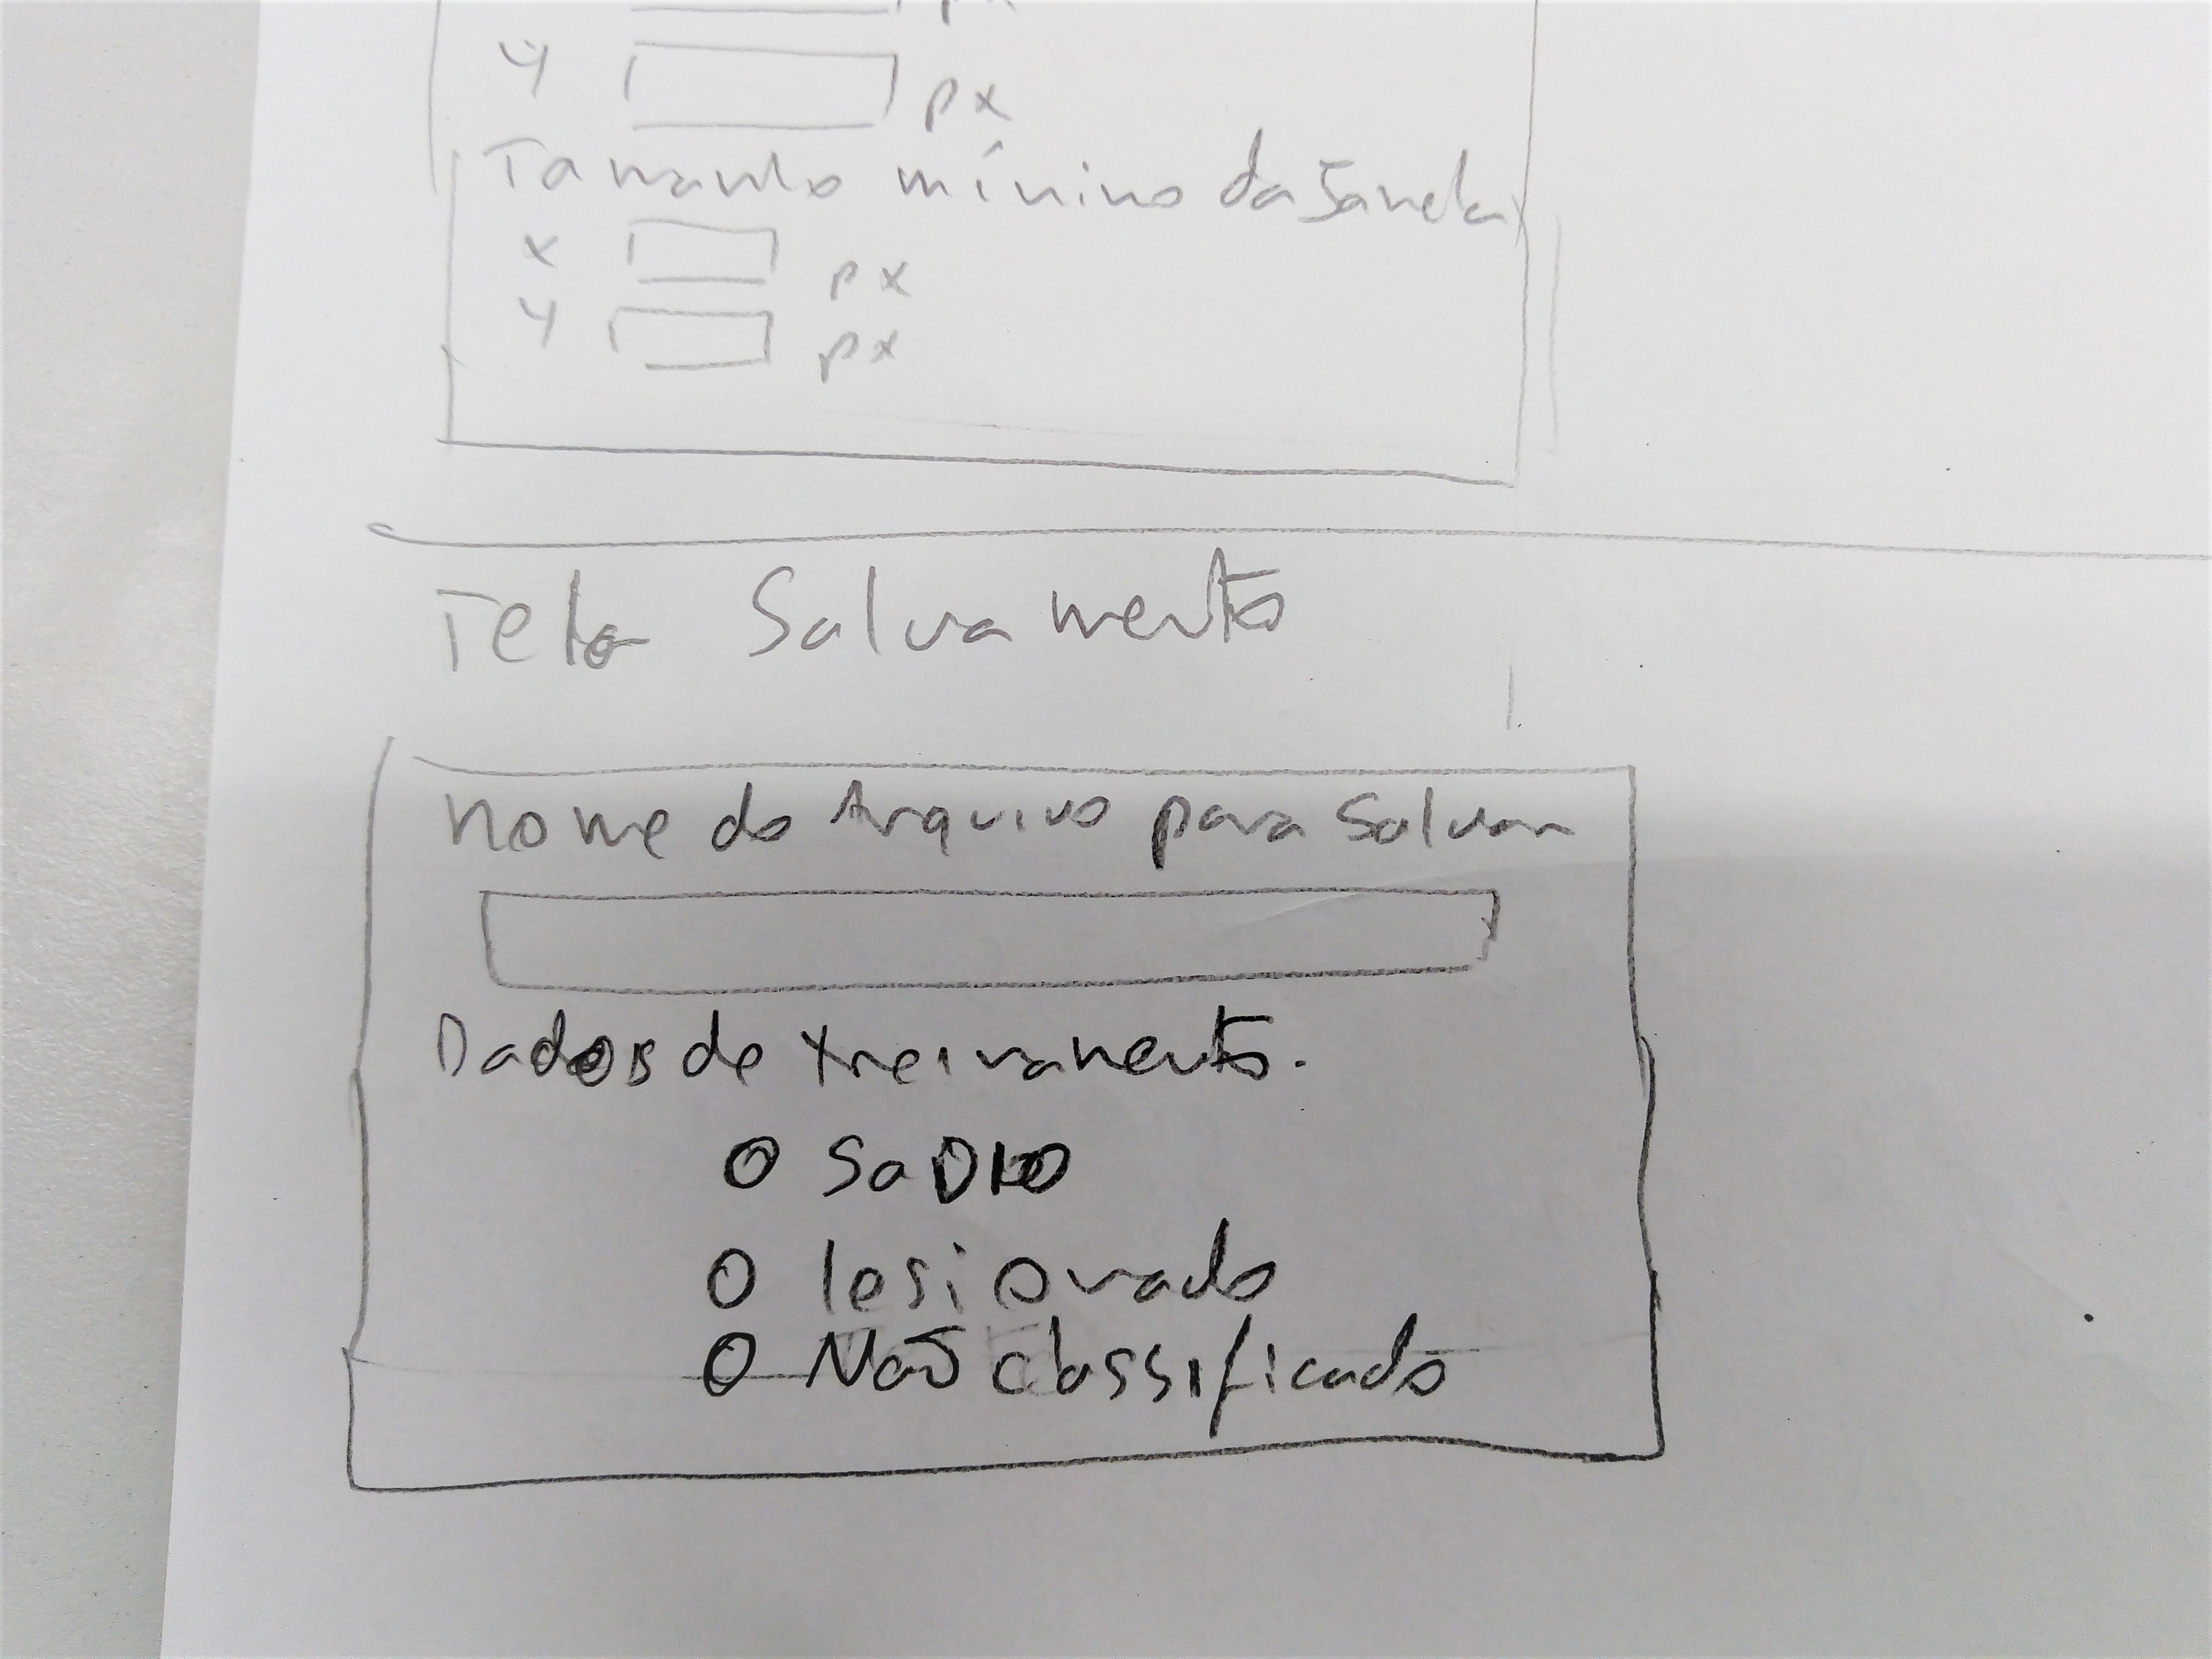 px
y px
Tamanho mínimo da Janela
x px
y px
Tela Salvamento
Nome do Arquivo para Salvar
Dados de treinamento.
O SaDIO
O lesionado
O Não classificado